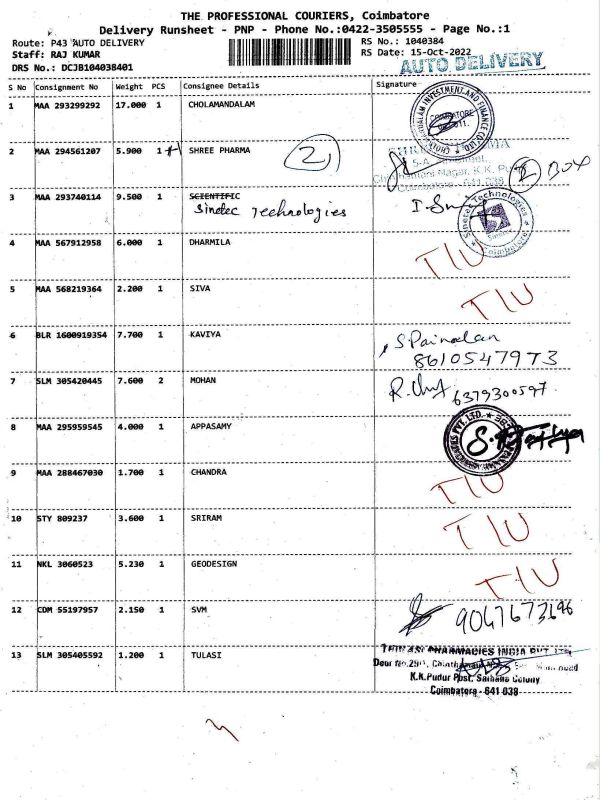 THE PROFESSIONAL COURIERS, Coimbatore
Delivery Runsheet - PNP - Phone No.:0422-3505555 - Page No.:1
Route: P43 AUTO DELIVERY
RS No.: 1040384
Staff: RAJ KUMAR
RS Date: 15-Oct-2022
DRS No.: DCJB104038401
AUTO DELIVERY
S No Consignment No Weight PCS Consignee Details Signature
1 MAA 293299292 17.000 1 CHOLAMANDALAM
2 MAA 294561207 5.900 1 SHREE PHARMA 2 2 BOX
Coimbatore - 641 038
3 MAA 293740114 9.500 1 SCIENTIFIC
Sinetec Technologies
Sinetec Technologies
Coimbatore
4 MAA 567912958 6.000 1 DHARMILA T/U
5 MAA 568219364 2.200 1 SIVA T/U
6 BLR 1600919354 7.700 1 KAVIYA
8610547973
7 SLM 305420445 7.600 2 MOHAN
6379300597
8 MAA 295959545 4.000 1 APPASAMY
9 MAA 288467030 1.700 1 CHANDRA T/U
10 STY 809237 3.600 1 SRIRAM T/U
11 NKL 3060523 5.230 1 GEODESIGN T/U
12 CDM 55197957 2.150 1 SVM
13 SLM 305405592 1.200 1 TULASI
PHARMACIES INDIA PVT. LTD
K.K.Pudur Post, Saibaba Colony
Coimbatore - 641 038